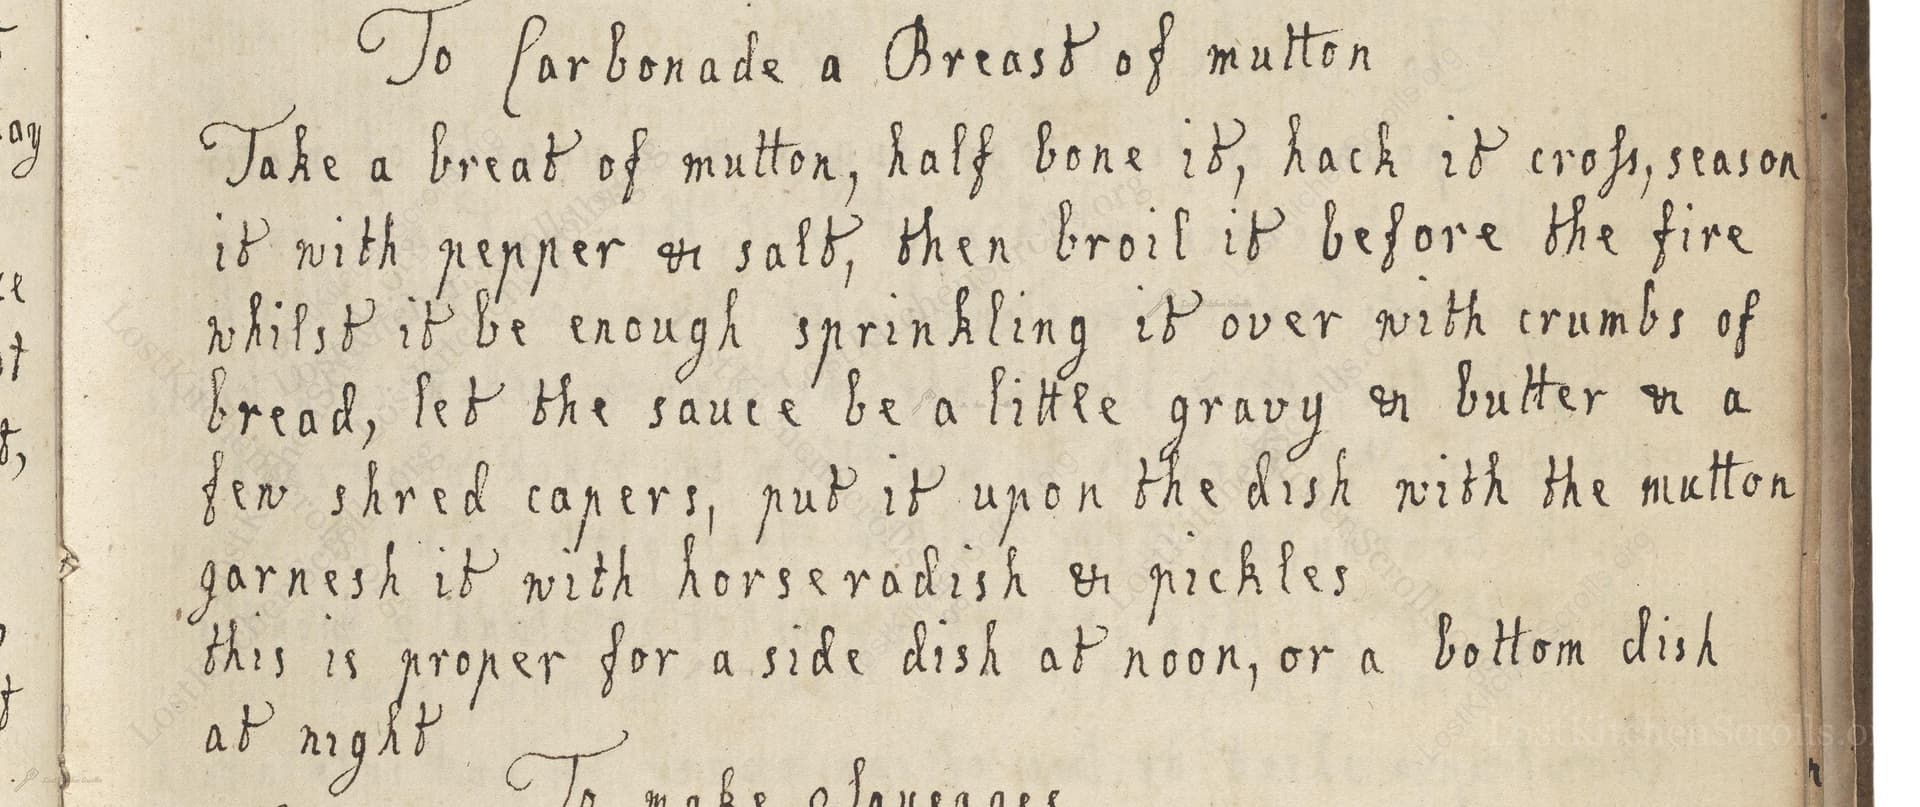 To Carbonade a Breast of mutton
Take a breat of mutton, half bone it, hack it croſs, season
it with pepper & salt, then broil it before the fire
whilst it be enough sprinkling it over with crumbs of
bread, let the sauce be a little gravy & butter & a
few shred capers, put it upon the dish with the mutton
garnesh it with horseradish & pickles
this is proper for a side dish at noon, or a bottom dish
at night
To make
LostKitchenScrolls.org